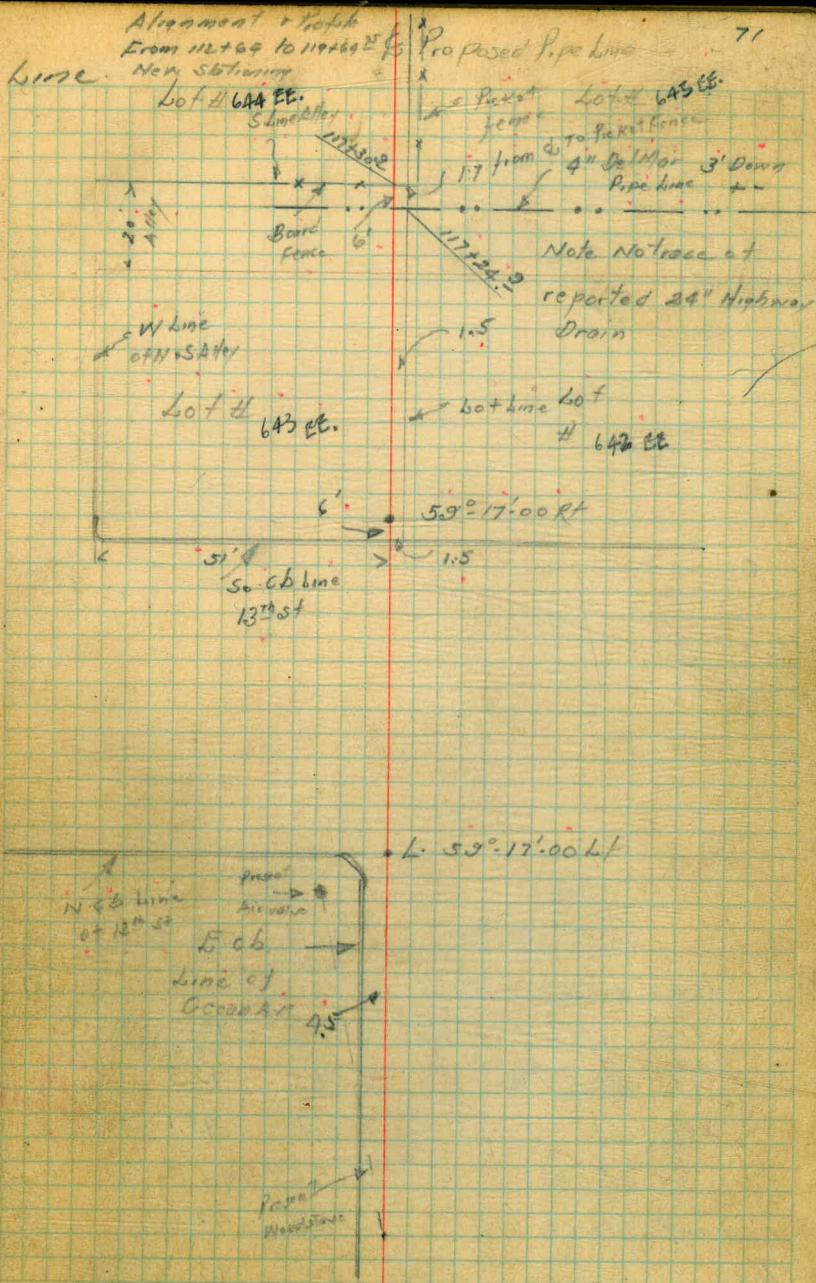 71
Alignment & Profile
From 112+64 to 119+69
℄ Proposed Pipe Line
Line
New Stationing
Lot # 644 EE.
S Line Alley
Picket
fence
Lot # 645 EE.
117+30.2
1.7 from ℄ To Picket Fence
4" Del Mar 3' Down
Pipe Line + -
20'
Alley
Board
Fence
6'
117+24.2
Note No trace of
reported 24" Highway
Drain
W Line
of N & S Alley
1.5
Lot # 643 EE.
Lot Line
Lot
# 642 EE
6'
59°-17'-00 Rt
51'
1.5
So. Cb Line
13th st
L. 59°-17'-00 Lt
N Cb Line
of 13th st
Present
Air valve
E cb
Line of
Ocean Av
4.5
Present
Woodstave